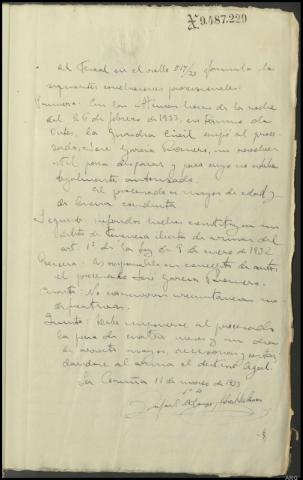 Nº 9.487.229
El Fiscal en el rollo 517/33 formula las
siguientes conclusiones provisionales:
Primera: En las últimas horas de la noche
del 26 de febrero de 1933, en término de
Ordes, la Guardia Civil ocupó al proce-
sado, José García Romero, un revolver
útil para disparar y para cuyo uso no estaba
legalmente autorizado.
El procesado es mayor de edad y
de buena conducta
Segunda: referidos hechos constituyen un
delito de tenencia ilícita de armas del
art. 1º de la Ley de 9 de enero de 1932
Tercera: Es responsable en concepto de autor
el procesado José García Romero.
Cuarta: No concurren circunstancias mo-
dificativas.
Quinta: Debe imponerse al procesado
la pena de cuatro meses y un día
de arresto mayor, accesorias y costas
dándose al arma el destino legal.
La Coruña 16 de marzo de 1933
Rafael Alonso